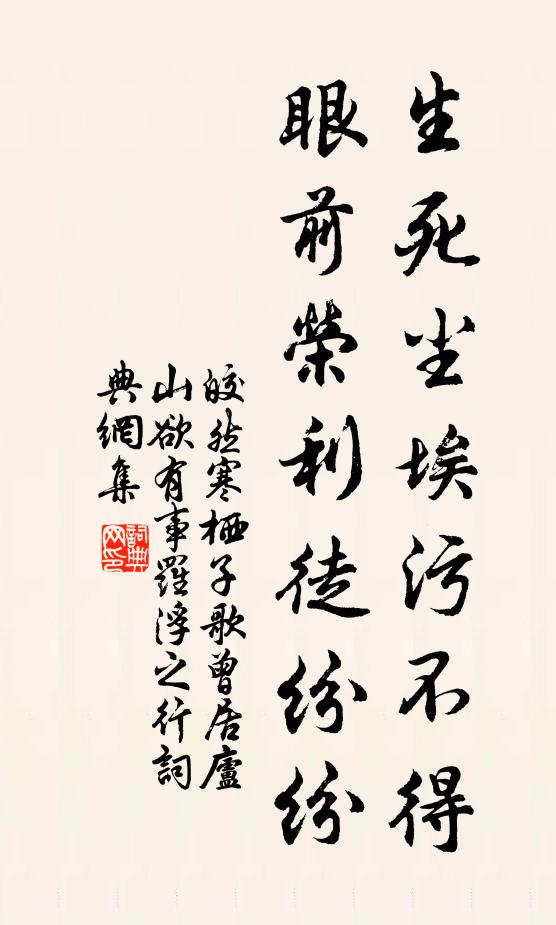 生死尘埃污不得
眼前榮利徒纷纷
皎然寒栖子歌曾居廬
山欲有事羅浮之行詞
典網集
詞典
网印